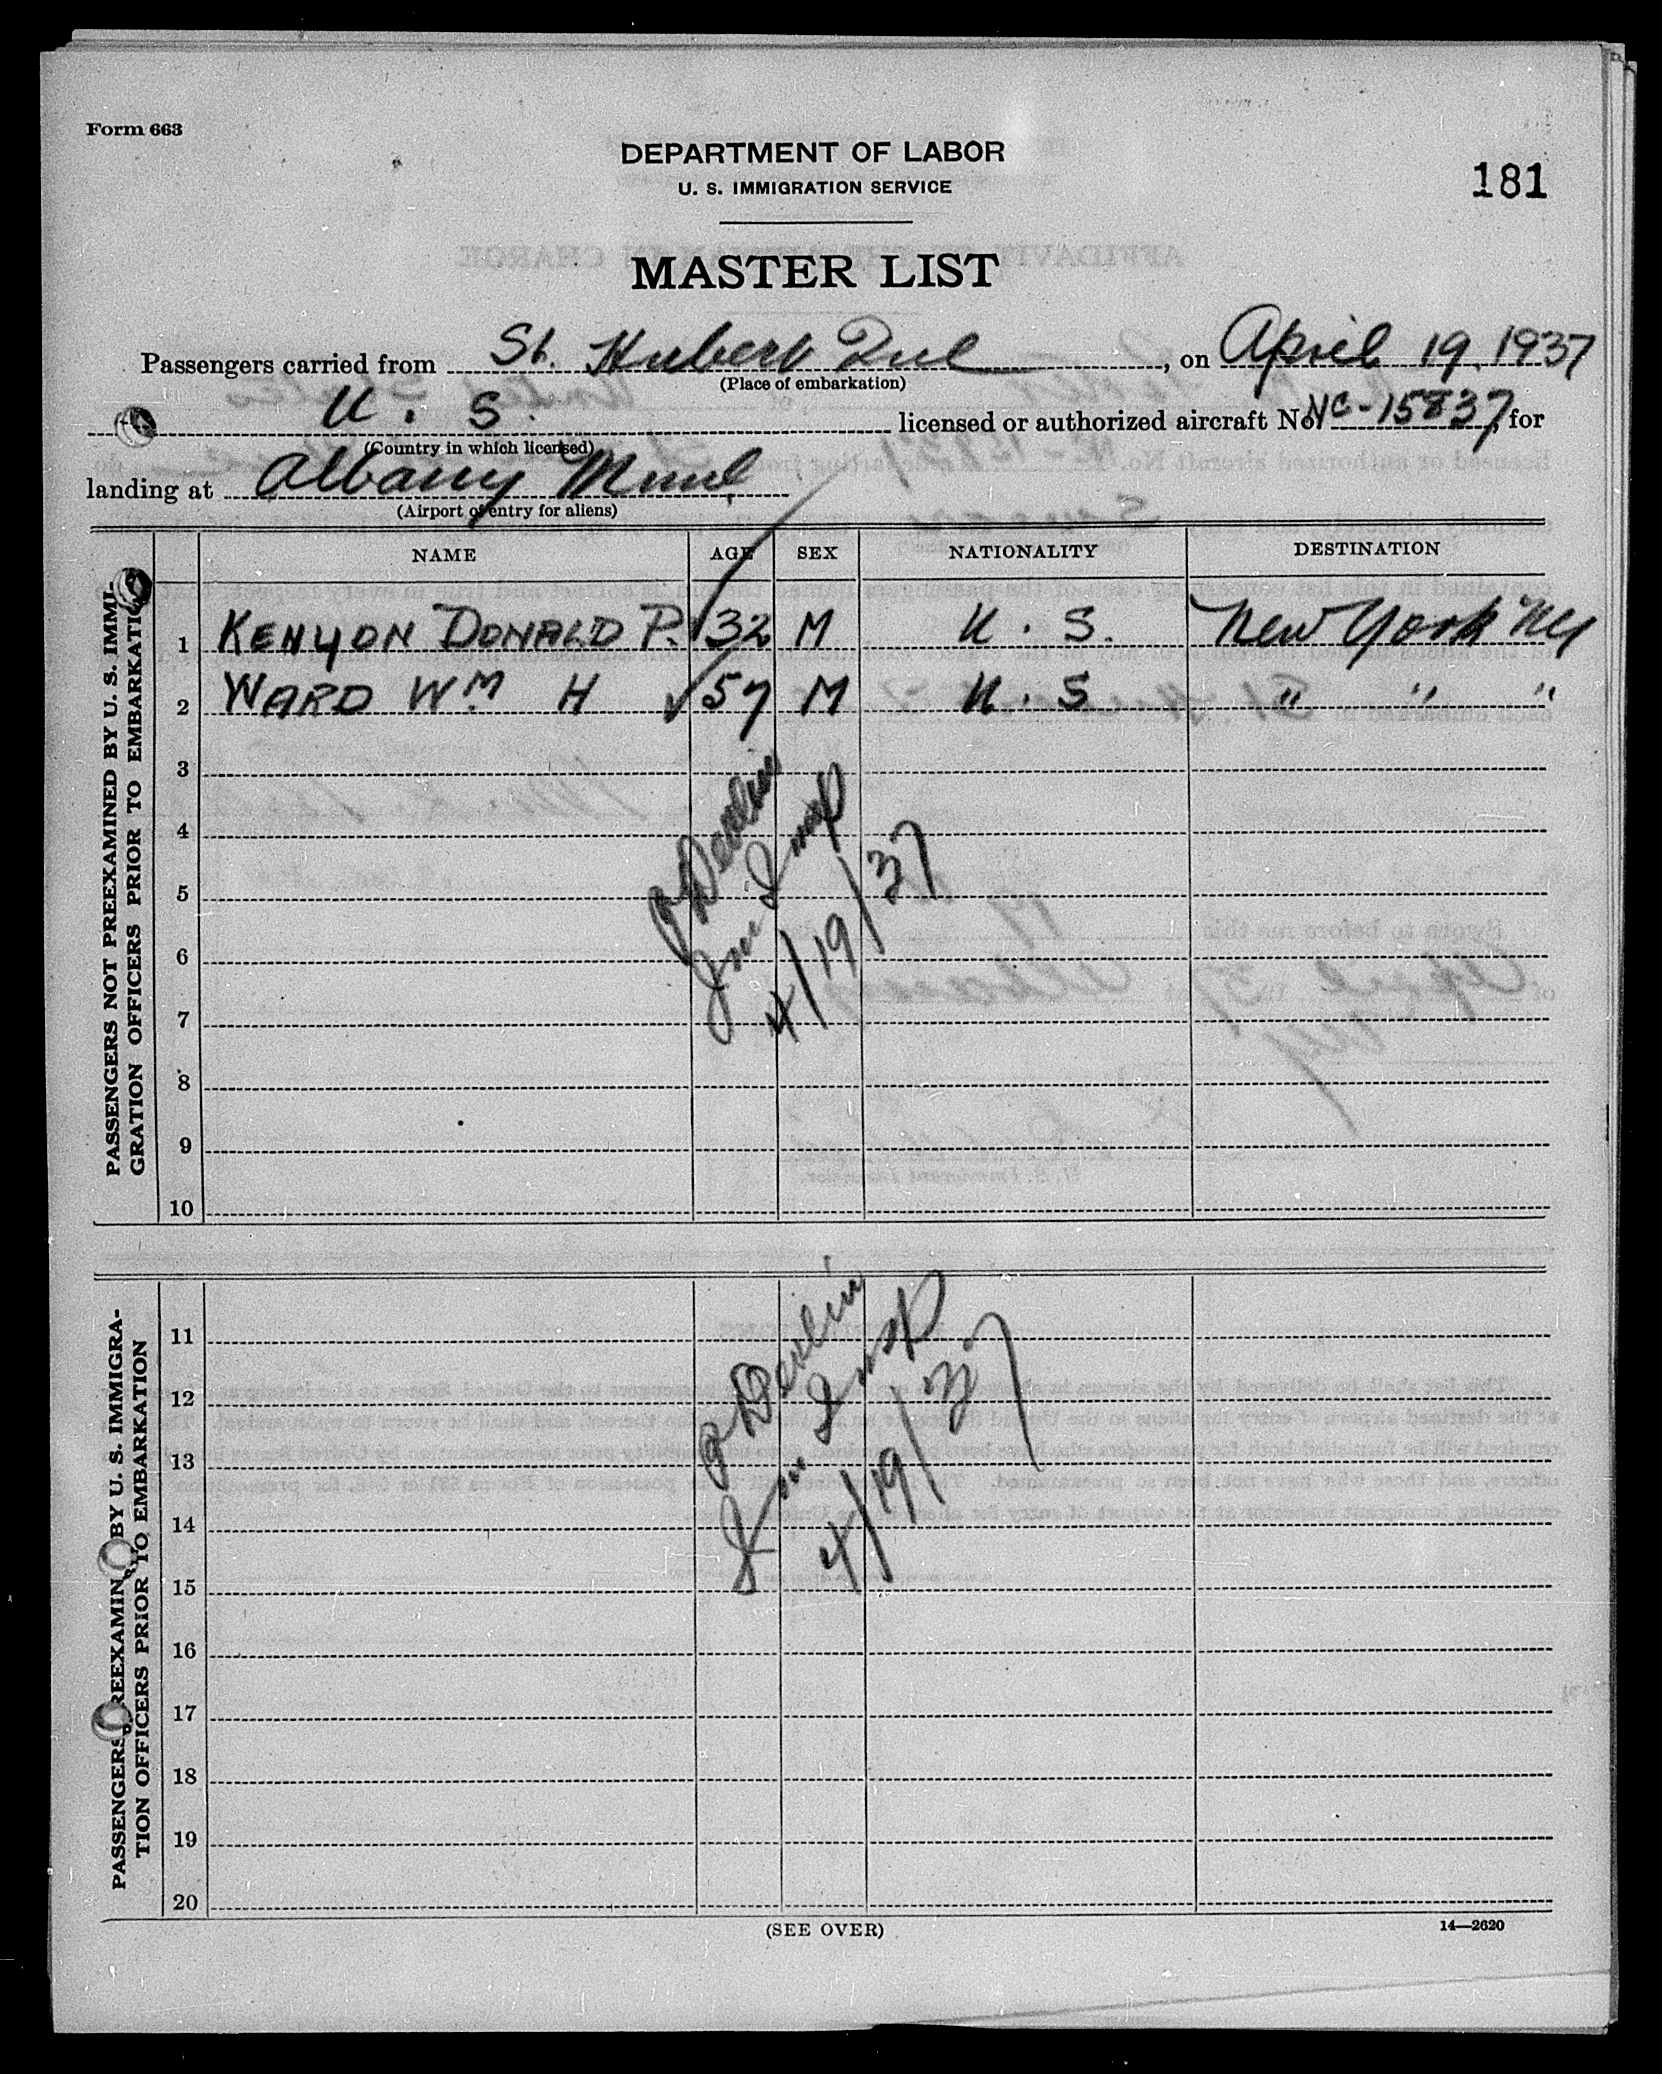 Form 663
DEPARTMENT OF LABOR
U. S. IMMIGRATION SERVICE
181
MASTER LIST
Passengers carried from St. Hubert Que , on April 19, 1937
(Place of embarkation)
U. S. licensed or authorized aircraft No. NC-15837, for
(Country in which licensed)
landing at Albany Muni
(Airport of entry for aliens)
NAME AGE SEX NATIONALITY DESTINATION
PASSENGERS NOT PREEXAMINED BY U. S. IMMI-
GRATION OFFICERS PRIOR TO EMBARKATION
1 KENYON DONALD P. ✓ 32 M U. S. New York NY
2 WARD WM H ✓ 57 M U. S. " " "
3
4
5
6
7
8
9
10
Devlin
Imm Insp
4/19/37
PASSENGERS PREEXAMINED BY U. S. IMMIGRA-
TION OFFICERS PRIOR TO EMBARKATION
11
12
13
14
15
16
17
18
19
20
Devlin
Imm Insp
4/19/37
(SEE OVER)
14—2620